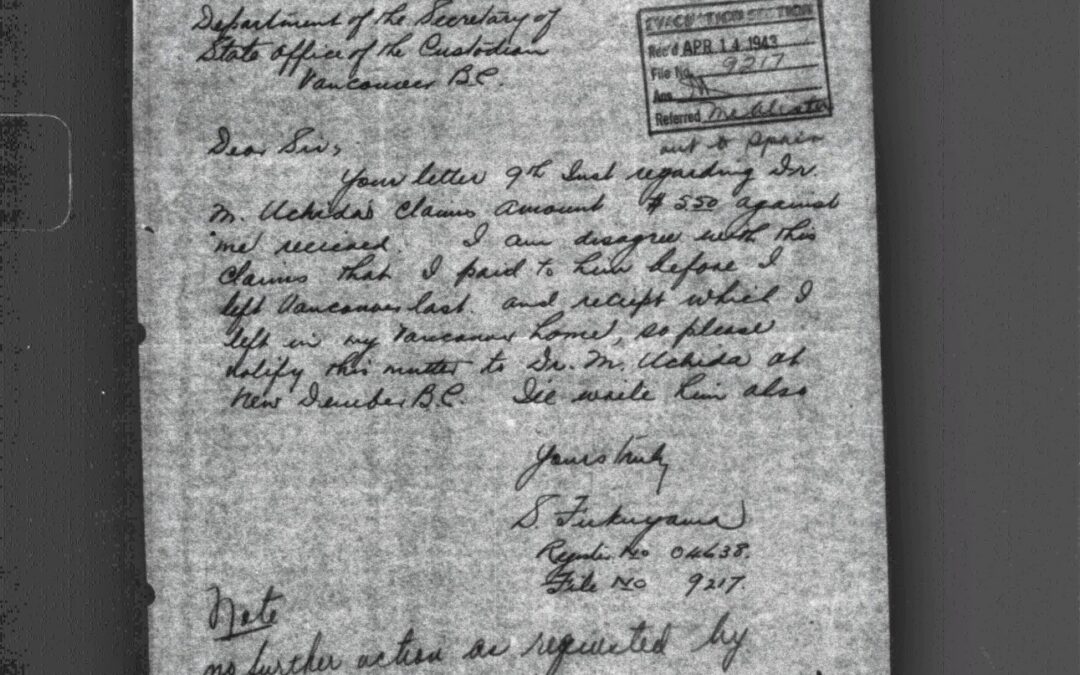 Department of the Secretary of
State Office of the Custodian
Vancouver B.C.
EVACUATION SECTION
Rec'd APR 14 1943
File No. 9217
Ans.
Referred McAlister
Dear Sir,
Your letter 9th Inst regarding Dr.
M. Uchida's claims amount $550 against
me recieved. I am disagree with this
claims that I paid to him before I
left Vancouver last. and reciept which I
left in my Vancouver home, so please
notify this matter to Dr. M. Uchida at
New Denber B.C. I'le write him also
Yours truly
S Fukuyama
Register No 04638.
File No 9217.
Note
no further action as requested by